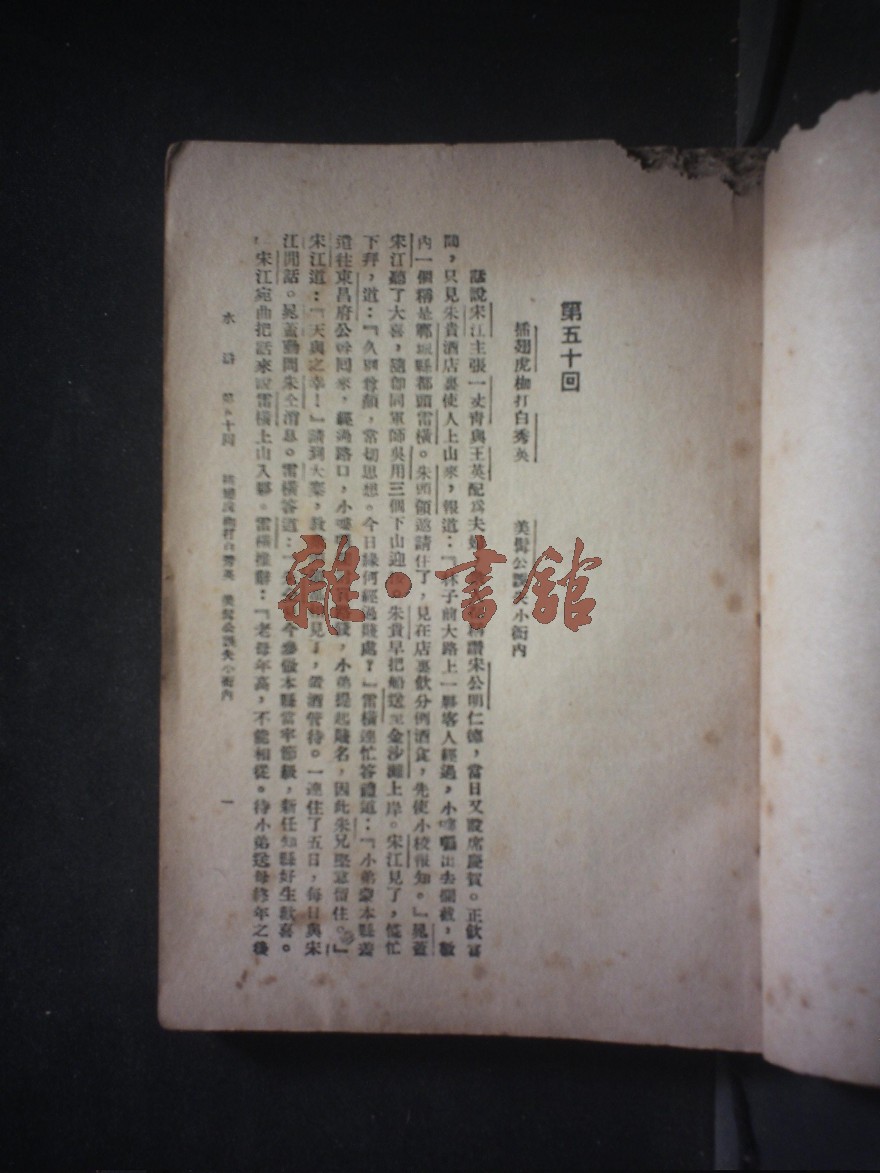 第五十回
插翅虎枷打白秀英　美髯公誤失小衙內
話說宋江主張一丈青與王英配為夫婦，眾人都稱讚宋公明仁德，當日又設席慶賀。正飲宴
間，只見朱貴酒店裏使人上山來，報道：『林子前大路上一夥客人經過，小嘍囉出去攔截，數
內一個稱是鄆城縣都頭雷橫。朱頭領邀請住了，見在店裏飲分例酒食，先使小校報知。』晁蓋
宋江聽了大喜，隨即同軍師吳用三個下山迎接。朱貴早把船送至金沙灘上岸。宋江見了，慌忙
下拜，道：『久別尊顏，常切思想。今日緣何經過賤處？』雷橫連忙答禮道：『小弟蒙本縣差
遣往東昌府公幹回來，經過路口，小嘍囉攔討買路錢，小弟提起賤名，因此朱兄堅意留住。』
宋江道：『天與之幸！』請到大寨，教眾頭領都相見了，置酒管待。一連住了五日，每日與宋
江閒話。晁蓋動問朱仝消息。雷橫答道：『朱仝見今參做本縣當牢節級，新任知縣好生歡喜。
』宋江宛曲把話來說雷橫上山入夥。雷橫推辭：『老母年高，不能相從。待小弟送母終年之後
水滸　第五十回　插翅虎枷打白秀英　美髯公誤失小衙內　一
雜·書館